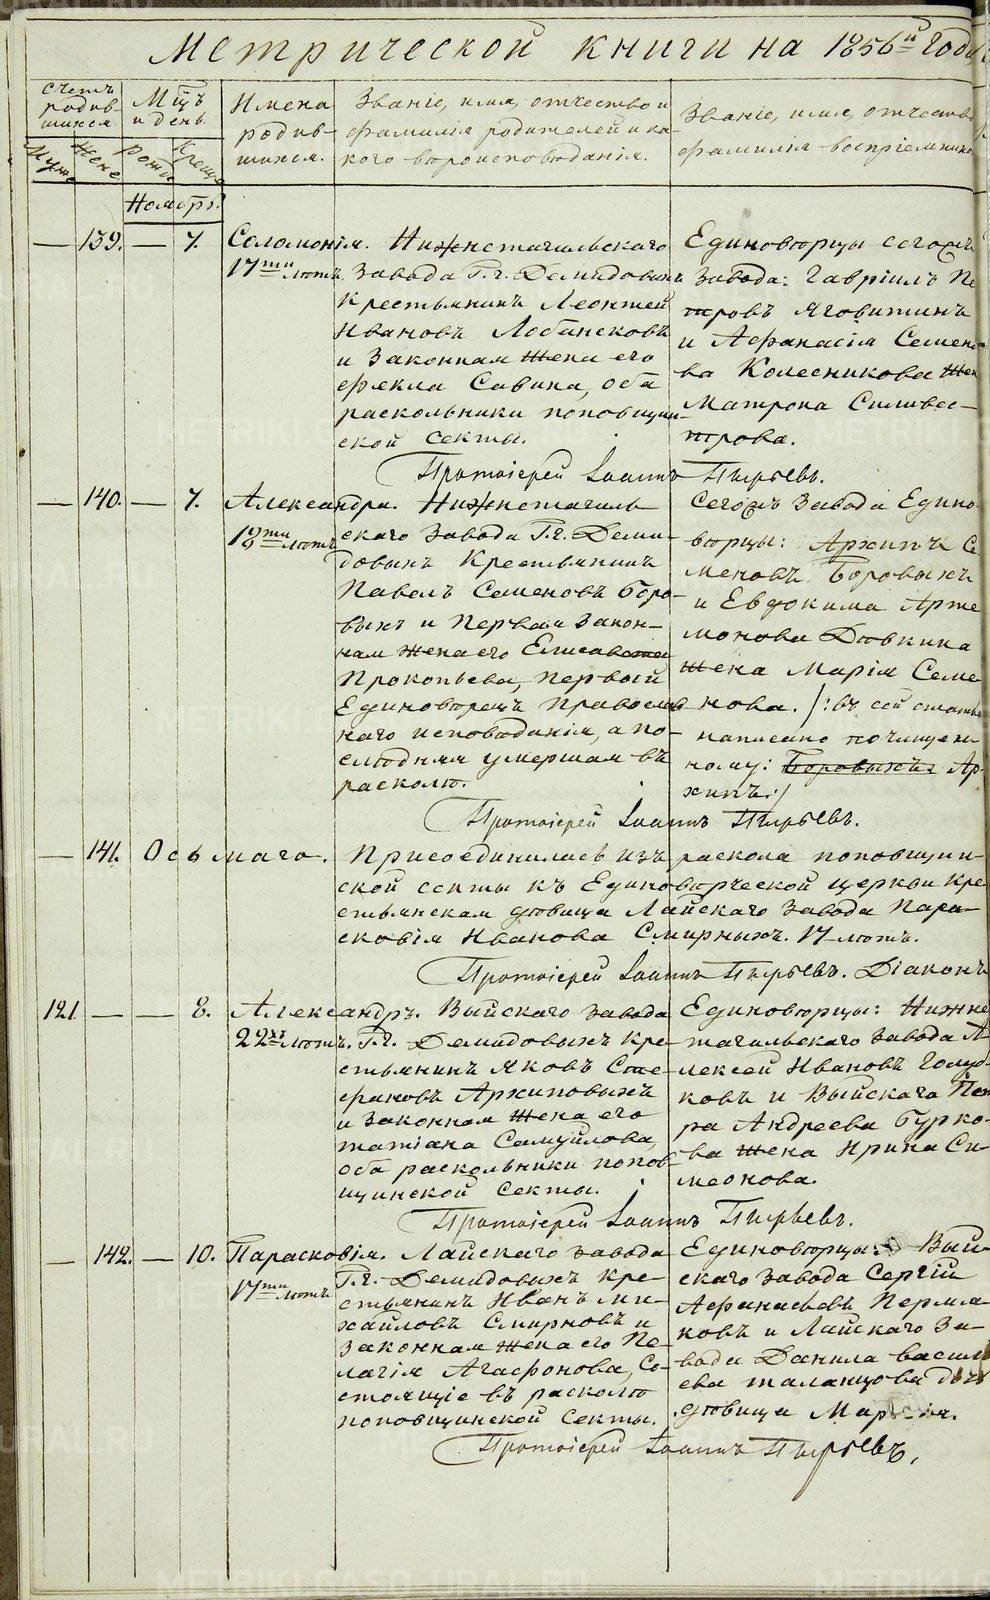 Метрической книги на 1856й Годъ
Счетъ родив- шихся.
Мцъ и день
Имена родив- шихся.
Званіе, имя, отчество и фамилія родителей и ка- кого вѣроисповѣданія.
Званіе, имя, отчество фамилія воспріемнико
Муже Жене Рожд Креще
Ноябрь.
— 139. — 7. Соломонія.
17ти лѣтъ
Нижнетагильскаго
завода Г.г. Демидовыхъ
Крестьянинъ Леонтей
Ивановъ Лобансковъ
и Законная Жена его
Фекла Савина, оба
раскольники поповщин-
ской секты.
Единовѣрцы сегожъ
завода: Гавріилъ Пе
тровъ Яговитинъ
и Афанасія Семено
ва Колесникова Жен
Матрона Сильвес-
трова.
Протоіерей Іоаннъ Пырьевъ.
— 140. — 7. Александра.
18ти лѣтъ
Нижнетагиль
скаго завода Г.г. Деми-
довыхъ Крестьянинъ
Павелъ Семеновъ Боро-
выхъ и Первая Закон-
ная Жена его Елисавета
Прокопьева, первый
Единовѣрецъ Православ
наго исповѣданія, а по-
слѣдняя умершая въ
расколѣ.
Сегожъ завода Едино-
вѣрцы: Архипъ Се
меновъ Боровыхъ
и Евдокима Арте
монова Дѣвкина
Жена Марія Семе
нова. /: въ сей статьѣ
написано почищен
ному: Боровыхъ. Ар-
хипъ:/
Протоіерей Іоаннъ Пырьевъ.
— 141. Осьмаго. Присоединилась изъ раскола поповщин-
ской секты къ Единовѣрческой церкви Кре
стьянская дѣвица Лайскаго завода Пара-
сковія Иванова Смирныхъ. 17 лѣтъ.
Протоіерей Іоаннъ Пырьевъ. Діаконъ
121 — — 8. Александръ.
22хъ лѣтъ.
Выйскаго завода
Г.г. Демидовыхъ Кре-
стьянинъ Яковъ Сте-
фановъ Архиповыхъ
и Законная Жена его
татіана Самуйлова,
оба раскольники попов-
щинской секты.
Единовѣрцы: Нижне
тагильскаго завода А-
лексей Ивановъ Голуб-
ковъ и Выйскаго Пет
ра Андреева Бурко-
ва Жена Ирина Си-
меонова.
Протоіерей Іоаннъ Пырьевъ.
— 142. — 10. Парасковія.
17ти лѣтъ
Лайскаго завода
Г.г. Демидовыхъ Кре-
стьянинъ Иванъ Ми-
хайловъ Смирновъ и
Законная Жена его Пе-
лагія Агафонова, Со-
стоящіе въ расколѣ
поповщинской секты.
Единовѣрцы: Вый-
скаго завода Сергій
Афанасьевъ Пермя-
ковъ и Лайскаго За-
вода Данила васил
ева таланцова доч
дѣвица Марія.
Протоіерей Іоаннъ Пырьевъ.